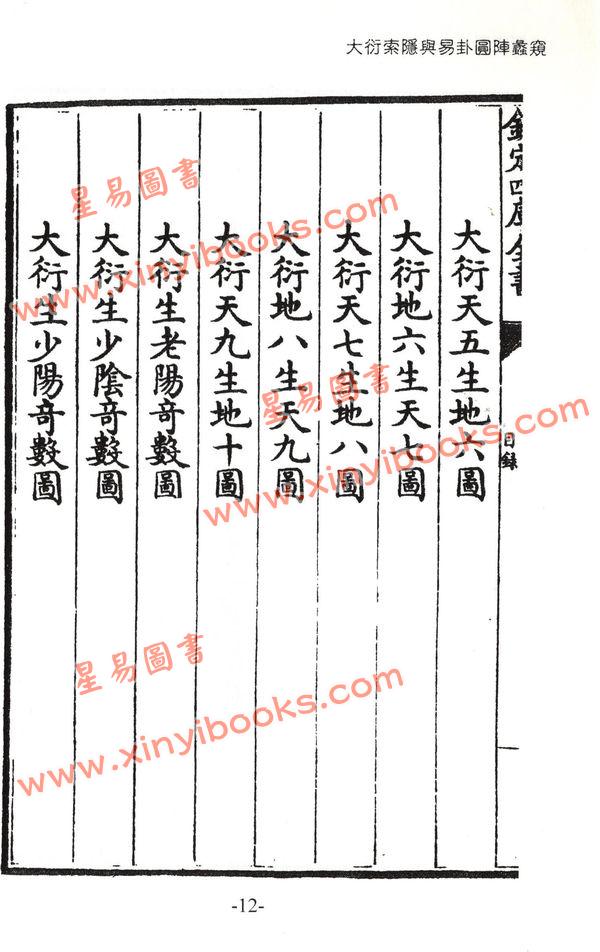 大衍索隱與易卦圓陣蠡窺
欽定四庫全書
目錄
大衍天五生地六圖
大衍地六生天七圖
大衍天七生地八圖
大衍地八生天九圖
大衍天九生地十圖
大衍生老陽竒數圖
大衍生少陰竒數圖
大衍生少陽竒數圖
星易圖書
www.xinyibooks.com
星易圖書
www.xinyibooks.com
星易圖書
www.xinyibooks.com
-12-